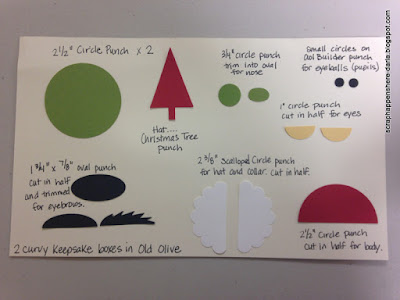 2½" Circle Punch x 2
Hat....
Christmas Tree
punch
¾" circle punch
trim into oval
for nose
small circles on
Owl Builder punch
for eyeballs (pupils)
1" circle punch
cut in half for eyes
1 ¾" x ⅞" oval punch
cut in half
and trimmed
for eyebrows.
2 ⅜" Scalloped Circle punch
for hat and collar. Cut in half.
2½" Circle punch
cut in half for body.
2 curvy keepsake boxes in Old Olive
scraphappenshere-darla.blogspot.com